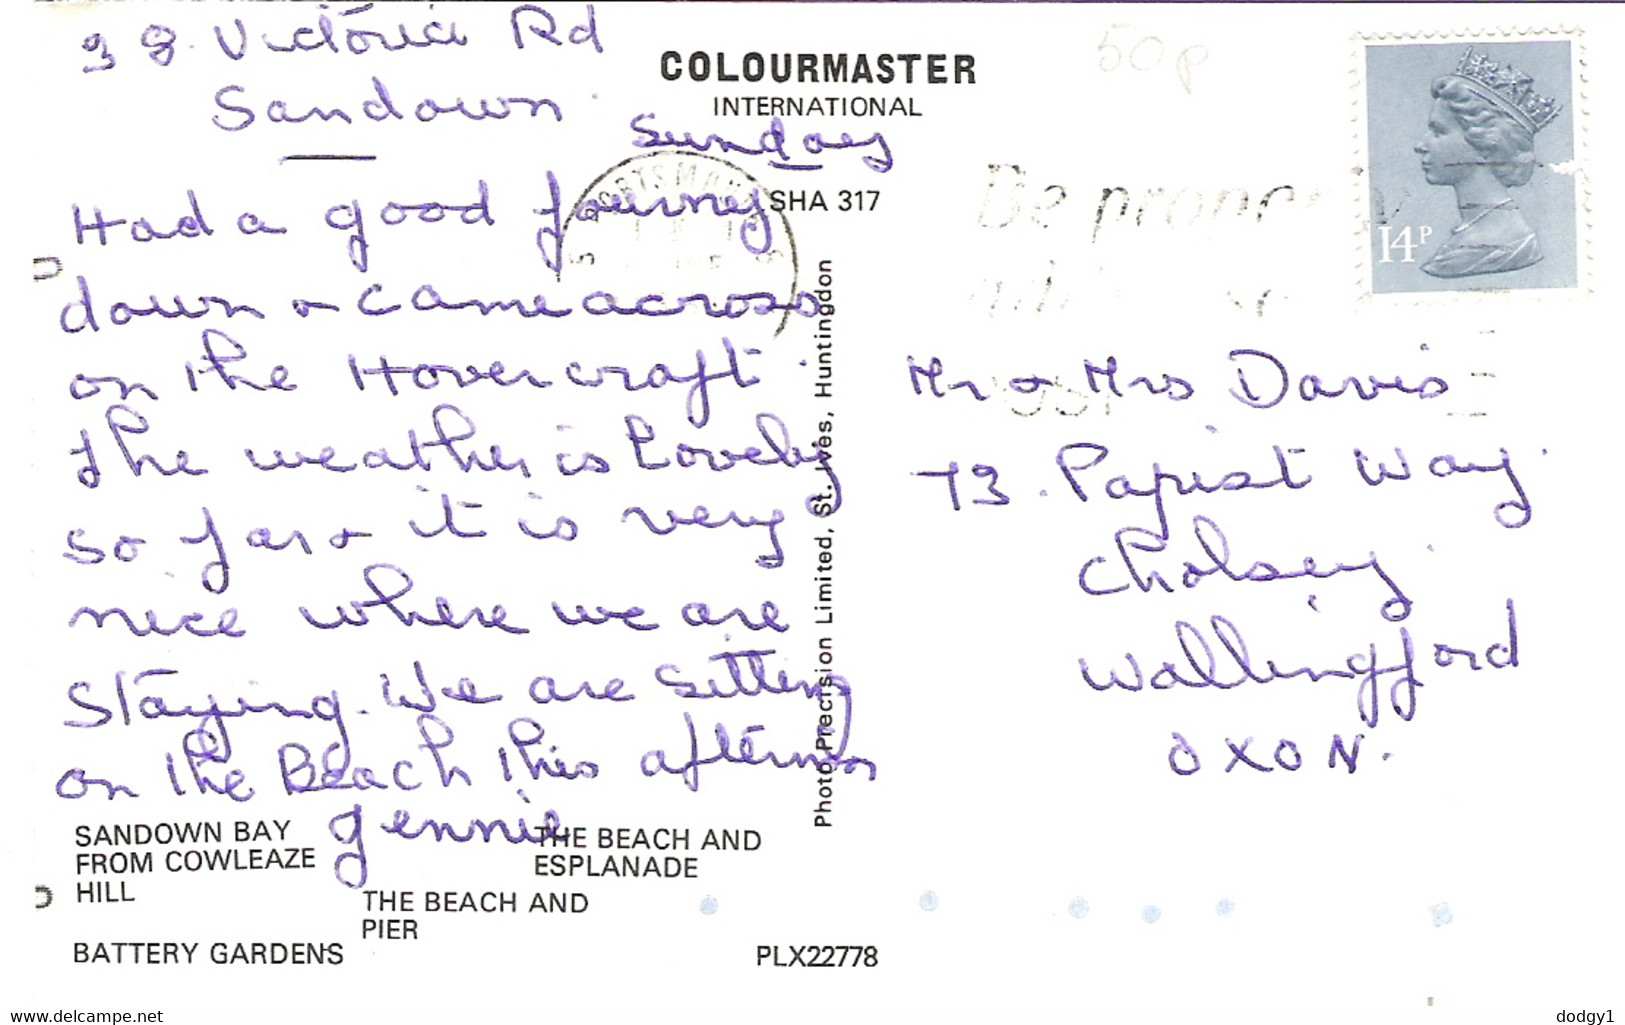 38. Victoria Rd
Sandown.
50p
COLOURMASTER
INTERNATIONAL
Sunday
SHA 317
14P
Had a good journey
down & came across
on the Hovercraft.
The weather is Lovely
so far & it is very
nice where we are
Staying. We are Sitting
on the Beach this afternoon
Jennie
Photo Precision Limited, St. Ives, Huntingdon
Mr & Mrs Davis
73. Papist Way.
Cholsey.
Wallingford
OXON.
SANDOWN BAY
FROM COWLEAZE
HILL
THE BEACH AND
ESPLANADE
THE BEACH AND
PIER
BATTERY GARDENS
PLX22778
www.delcampe.net
dodgy1